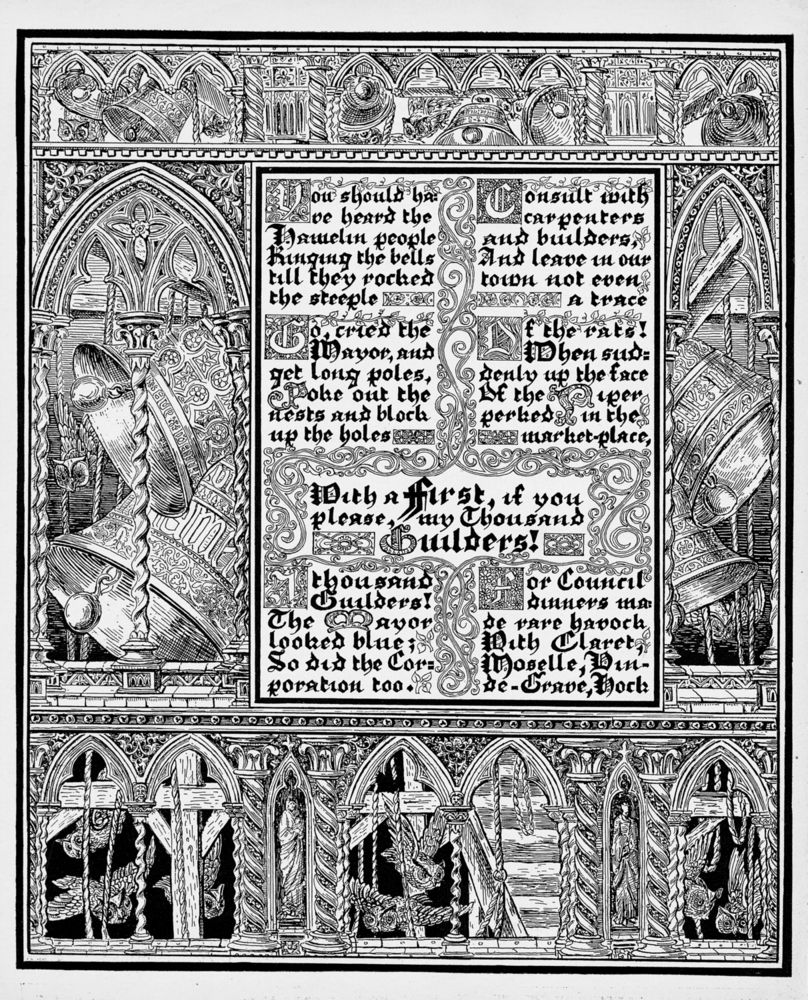 You should ha-
ve heard the
Hamelin people
Ringing the bells
till they rocked
the steeple
Go, cried the
Mayor, and
get long poles,
Poke out the
nests and block
up the holes
Consult with
carpenters
and builders,
And leave in our
town not even
a trace
Of the rats!
When sud-
denly up the face
Of the Piper
perked in the
market-place,
With a First, if you
please, my Thousand
Guilders!
A thousand
Guilders!
The Mayor
looked blue;
So did the Cor-
poration too.
For Council
dinners ma-
de rare havock
With Claret,
Moselle, Vin-
de-Grave, Hock